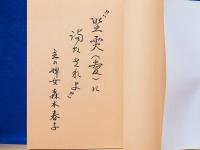 "聖霊(愛)に
満たされよ"
主の婢女 森本春子